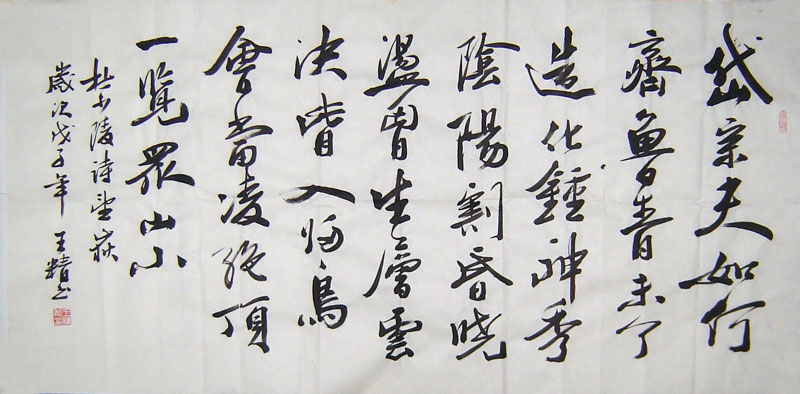 岱宗夫如何
齊魯青未了
造化鍾神秀
陰陽割昏曉
盪胷生層雲
決眥入歸鳥
會當凌絕頂
一覽眾山小
杜少陵詩望嶽
歲次戊子年 王精書